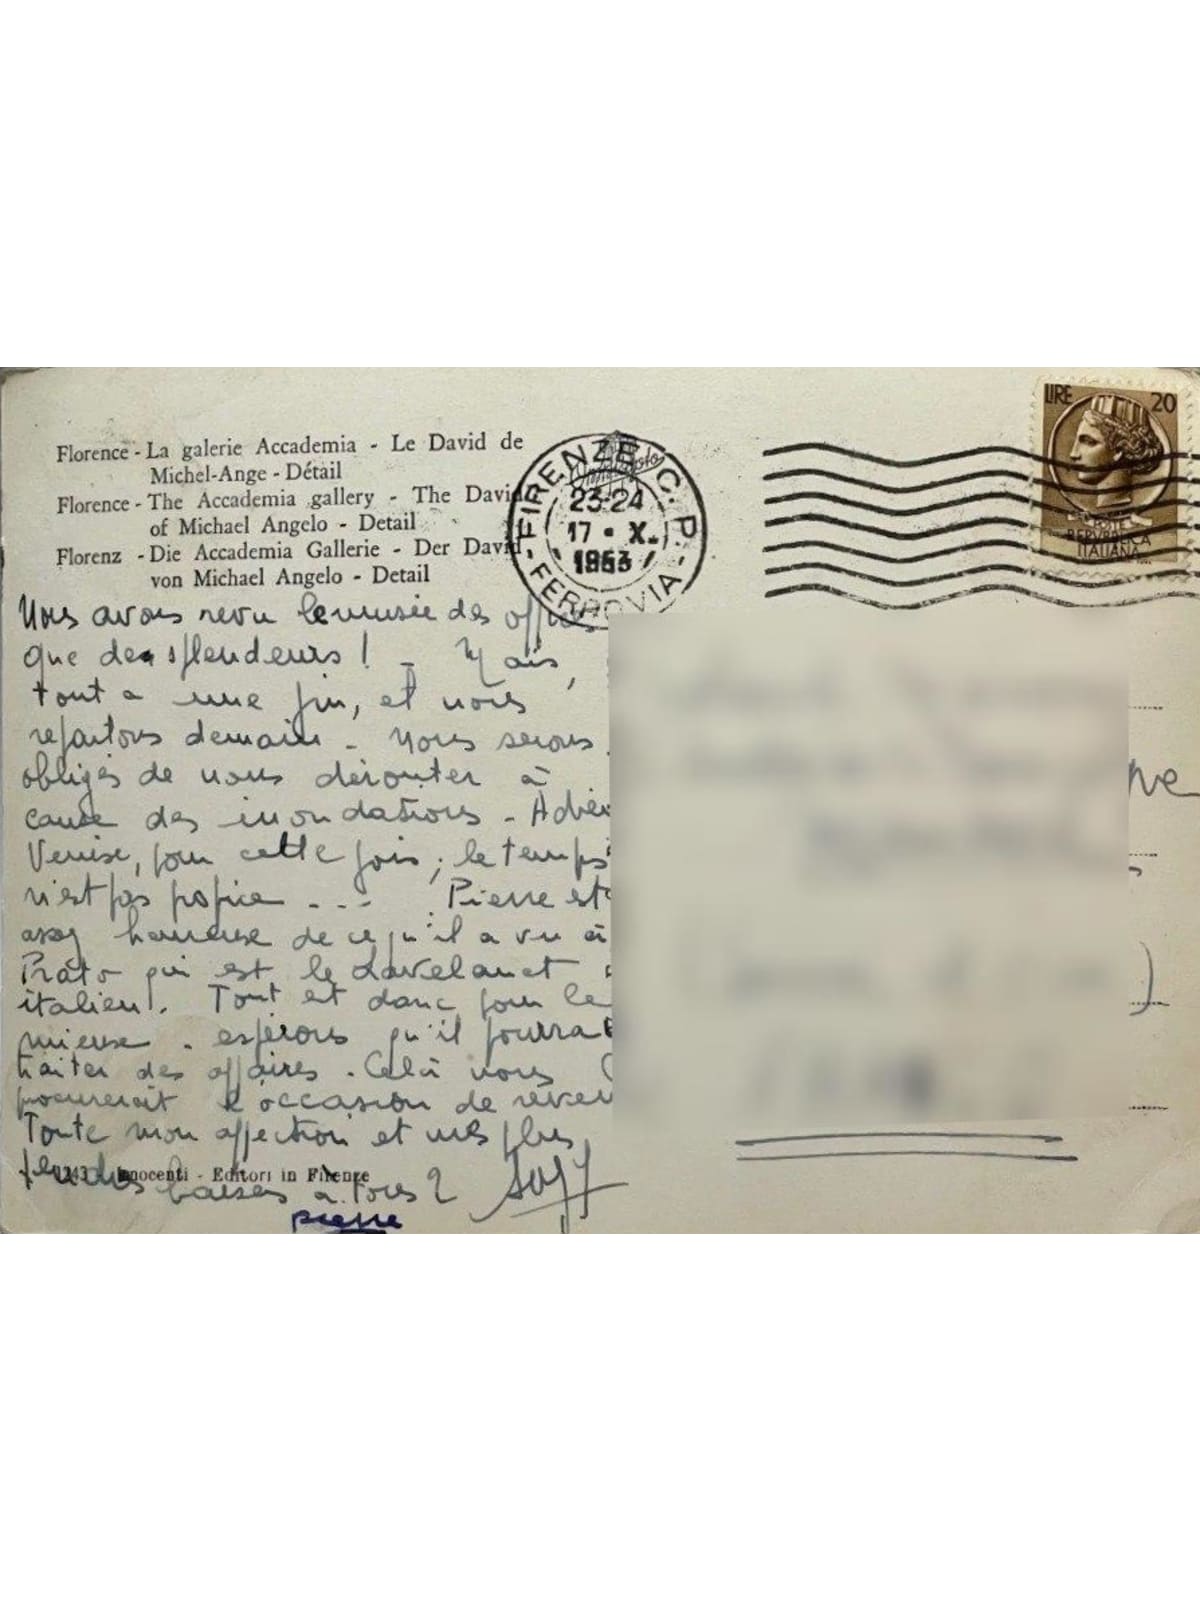 Florence - La galerie Accademia - Le David de
Michel-Ange - Détail
Florence - The Accademia gallery - The David
of Michael Angelo - Detail
Florenz - Die Accademia Gallerie - Der David
von Michael Angelo - Detail
FIRENZE C.P.
23-24
17 • X.
1963
FERROVIA
LIRE 20
POSTE
REPVBBLICA
ITALIANA
Nous avons revu le musée des offices
que des splendeurs ! - Mais,
tout a une fin, et nous
repartons demain - Nous serons
obligés de nous dérouter à
cause des inondations - Adieu
Venise, pour cette fois, le temps
n'est pas propice - - - Pierre est
assez heureux de ce qu'il a vu à
Prato qui est le Lavelanet
italien. Tout est donc pour le
mieux - espérons qu'il pourra
traiter des affaires - Celà nous
procurerait l'occasion de
Toute mon affection et mes plus
tendres baisers à tous 2
243 - Innocenti - Editori in Firenze
Pierre